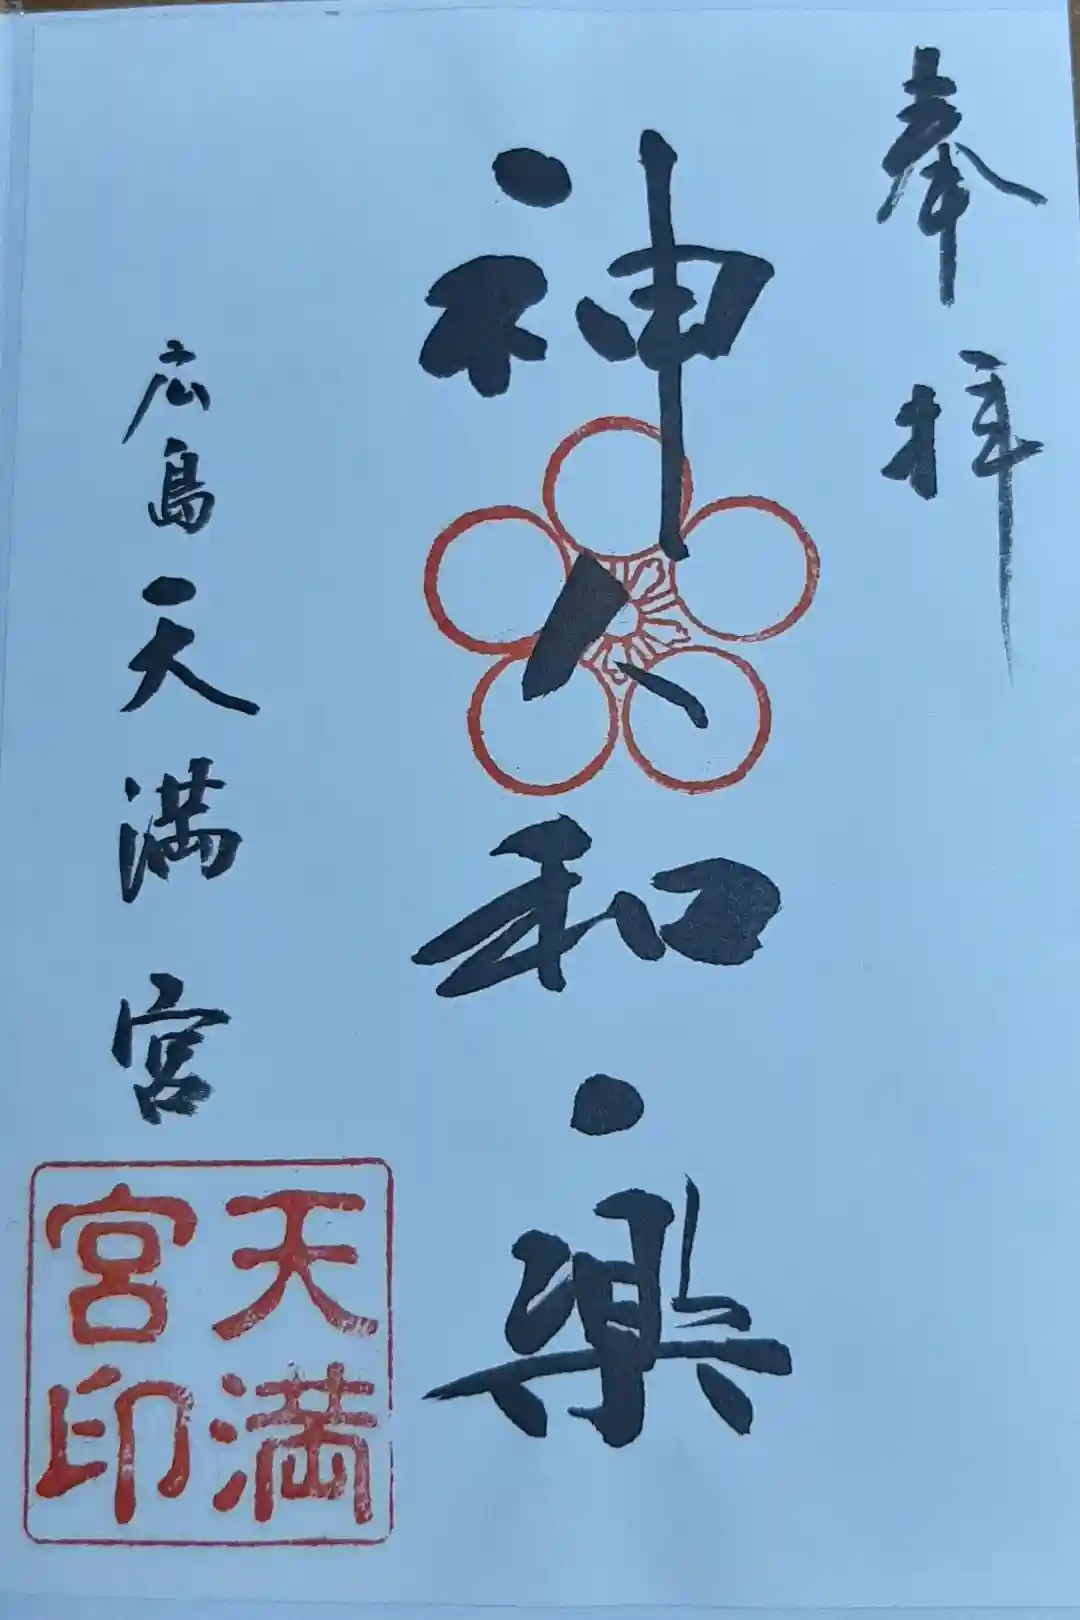 奉拝
神人和・楽
広島天満宮
天満
宮印